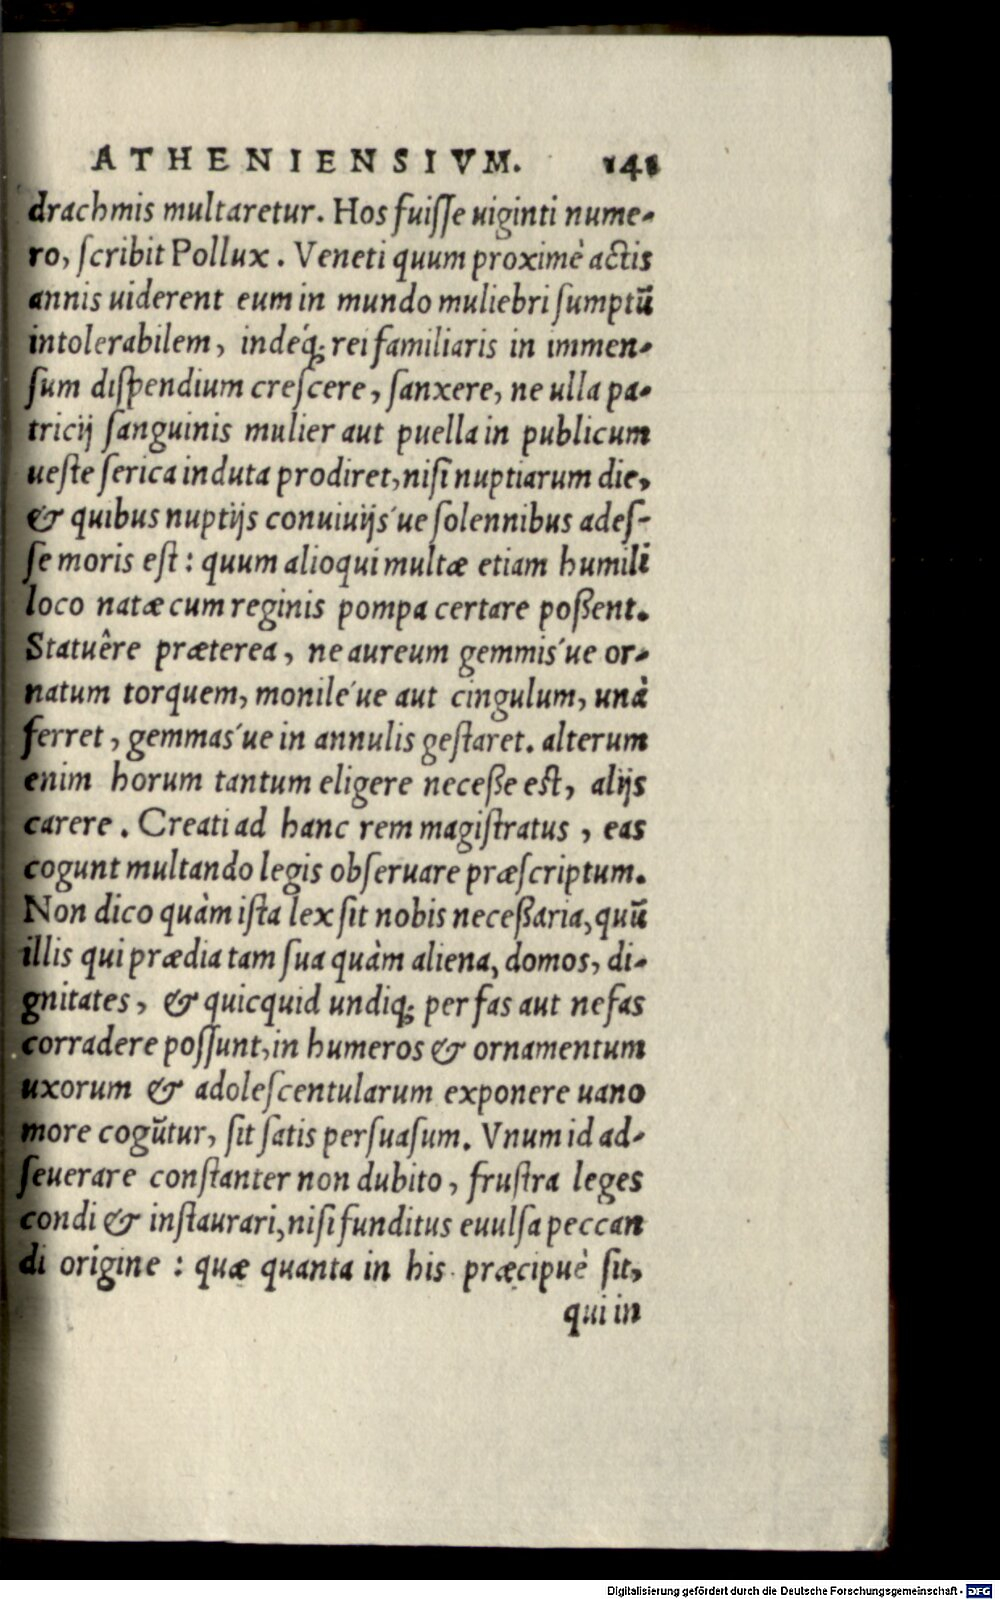 ATHENIENSIVM. 141
drachmis multaretur. Hos fuiſſe uiginti nume-
ro, ſcribit Pollux. Veneti quum proximè actis
annis uiderent eum in mundo muliebri ſumptū
intolerabilem, indéq; rei familiaris in immen-
ſum diſpendium creſcere, ſanxere, ne ulla pa-
tricij ſanguinis mulier aut puella in publicum
ueſte ſerica induta prodiret, niſi nuptiarum die,
& quibus nuptijs conuiuijs'ue ſolennibus adeſ-
ſe moris eſt: quum alioqui multæ etiam humili
loco natæ cum reginis pompa certare poßent.
Statuêre præterea, ne aureum gemmis'ue or-
natum torquem, monile'ue aut cingulum, unà
ferret, gemmas'ue in annulis geſtaret. alterum
enim horum tantum eligere neceße eſt, alijs
carere. Creati ad hanc rem magiſtratus, eas
cogunt multando legis obſeruare præſcriptum.
Non dico quàm iſta lex ſit nobis neceßaria, quū
illis qui prædia tam ſua quàm aliena, domos, di-
gnitates, & quicquid undiq; per fas aut nefas
corradere poſſunt, in humeros & ornamentum
uxorum & adoleſcentularum exponere uano
more cogūtur, ſit ſatis perſuaſum. Vnum id ad-
ſeuerare conſtanter non dubito, fruſtra leges
condi & inſtaurari, niſi funditus euulſa peccan
di origine: quæ quanta in his præcipuè ſit,
qui in
Digitalisierung gefördert durch die Deutsche Forschungsgemeinschaft - DFG